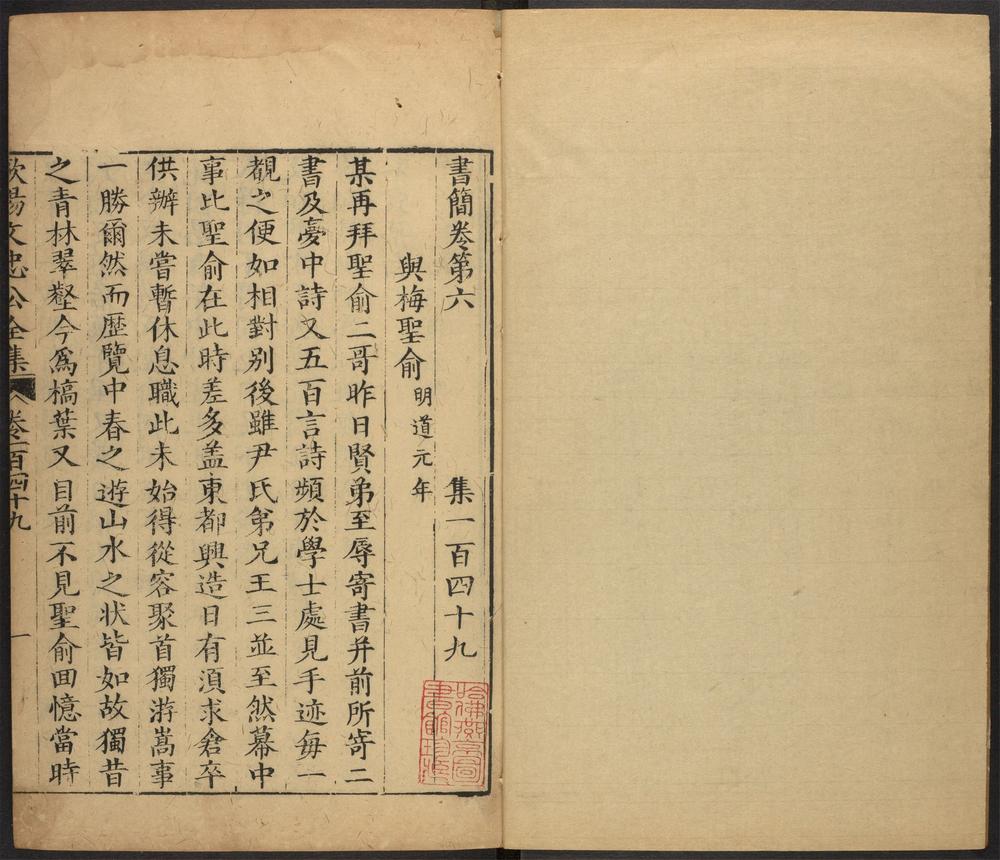 書簡卷第六 集一百四十九
與梅聖俞 明道元年
某再拜聖俞二哥昨日賢弟至辱寄書并前所寄二
書及憂中詩又五百言詩頻於學士處見手迹每一
覩之便如相對別後雖尹氏弟兄王三並至然幕中
事比聖俞在此時差多蓋東都興造日有湏求倉卒
供辦未嘗暫休息職此未始得從容聚首獨游嵩事
一勝爾然而歷覽中春之遊山水之状皆如故獨昔
之青林翠壑今爲槁葉又目前不見聖俞回憶當時
歐陽文忠公全集 卷一百四十九 一
哈佛燕京圖
書館珍藏